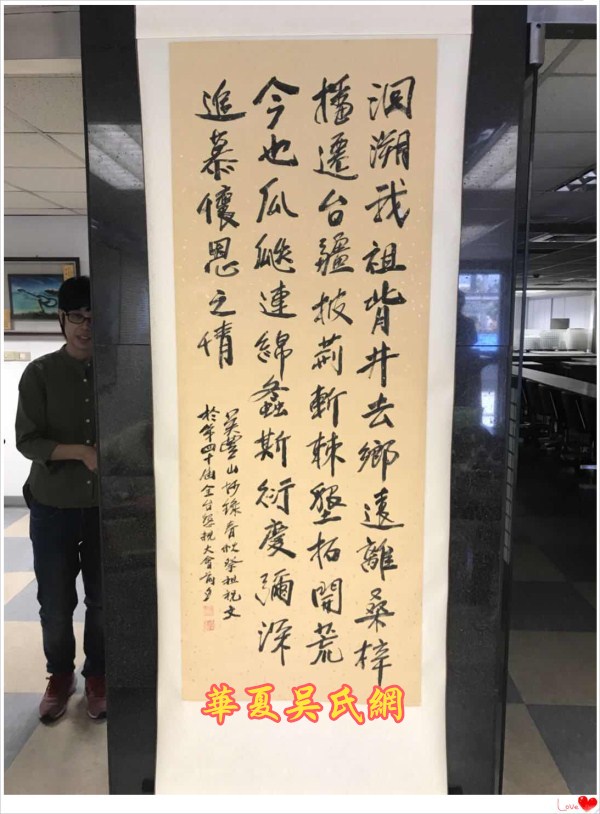 洄溯我祖背井去鄉遠離桑梓
播遷台疆披荊斬棘墾拓開荒
今也瓜瓞連綿螽斯衍慶彌深
追慕懷恩之情
吳豐山抄錄春秋祭祖祝文
於第四十屆全台懇親大會前夕
華夏吳氏網
Love